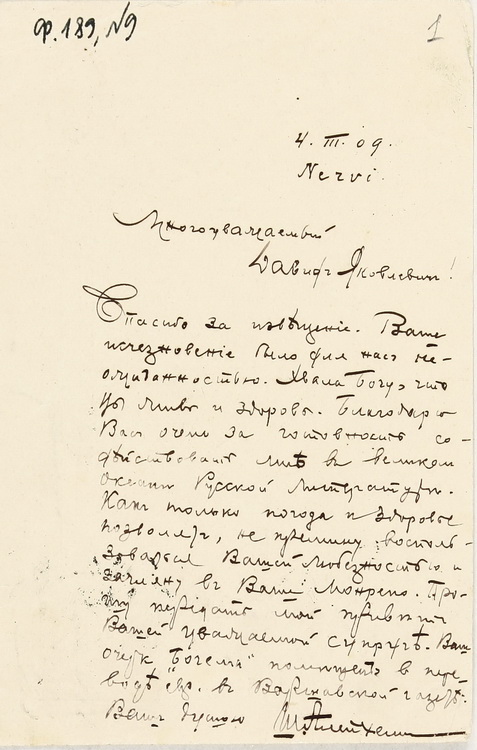 Ф. 189, №9
1
4. III. 09.
Nervi.
Многоуважаемый
Давидъ Яковлевичъ!
Спасибо за извѣщеніе. Ваше
исчезновеніе было для насъ не-
ожиданностью. Хвала Богу, что
Вы живы и здоровы. Благодарю
Васъ очень за готовность со-
дѣйствовать мнѣ въ великом
океанѣ Русской литературы.
Какъ только погода и здоровье
позволятъ, не премину восполь-
зоваться Вашей любезностью и
загляну въ Ваше Монрепо. Про-
шу передать мой привѣтъ
Вашей уважаемой супругѣ. Ваш
очерк "Богема" помѣщенъ в пере-
водѣ въ Варшавской газетѣ.
Вашъ душою Ш. Алейхемъ